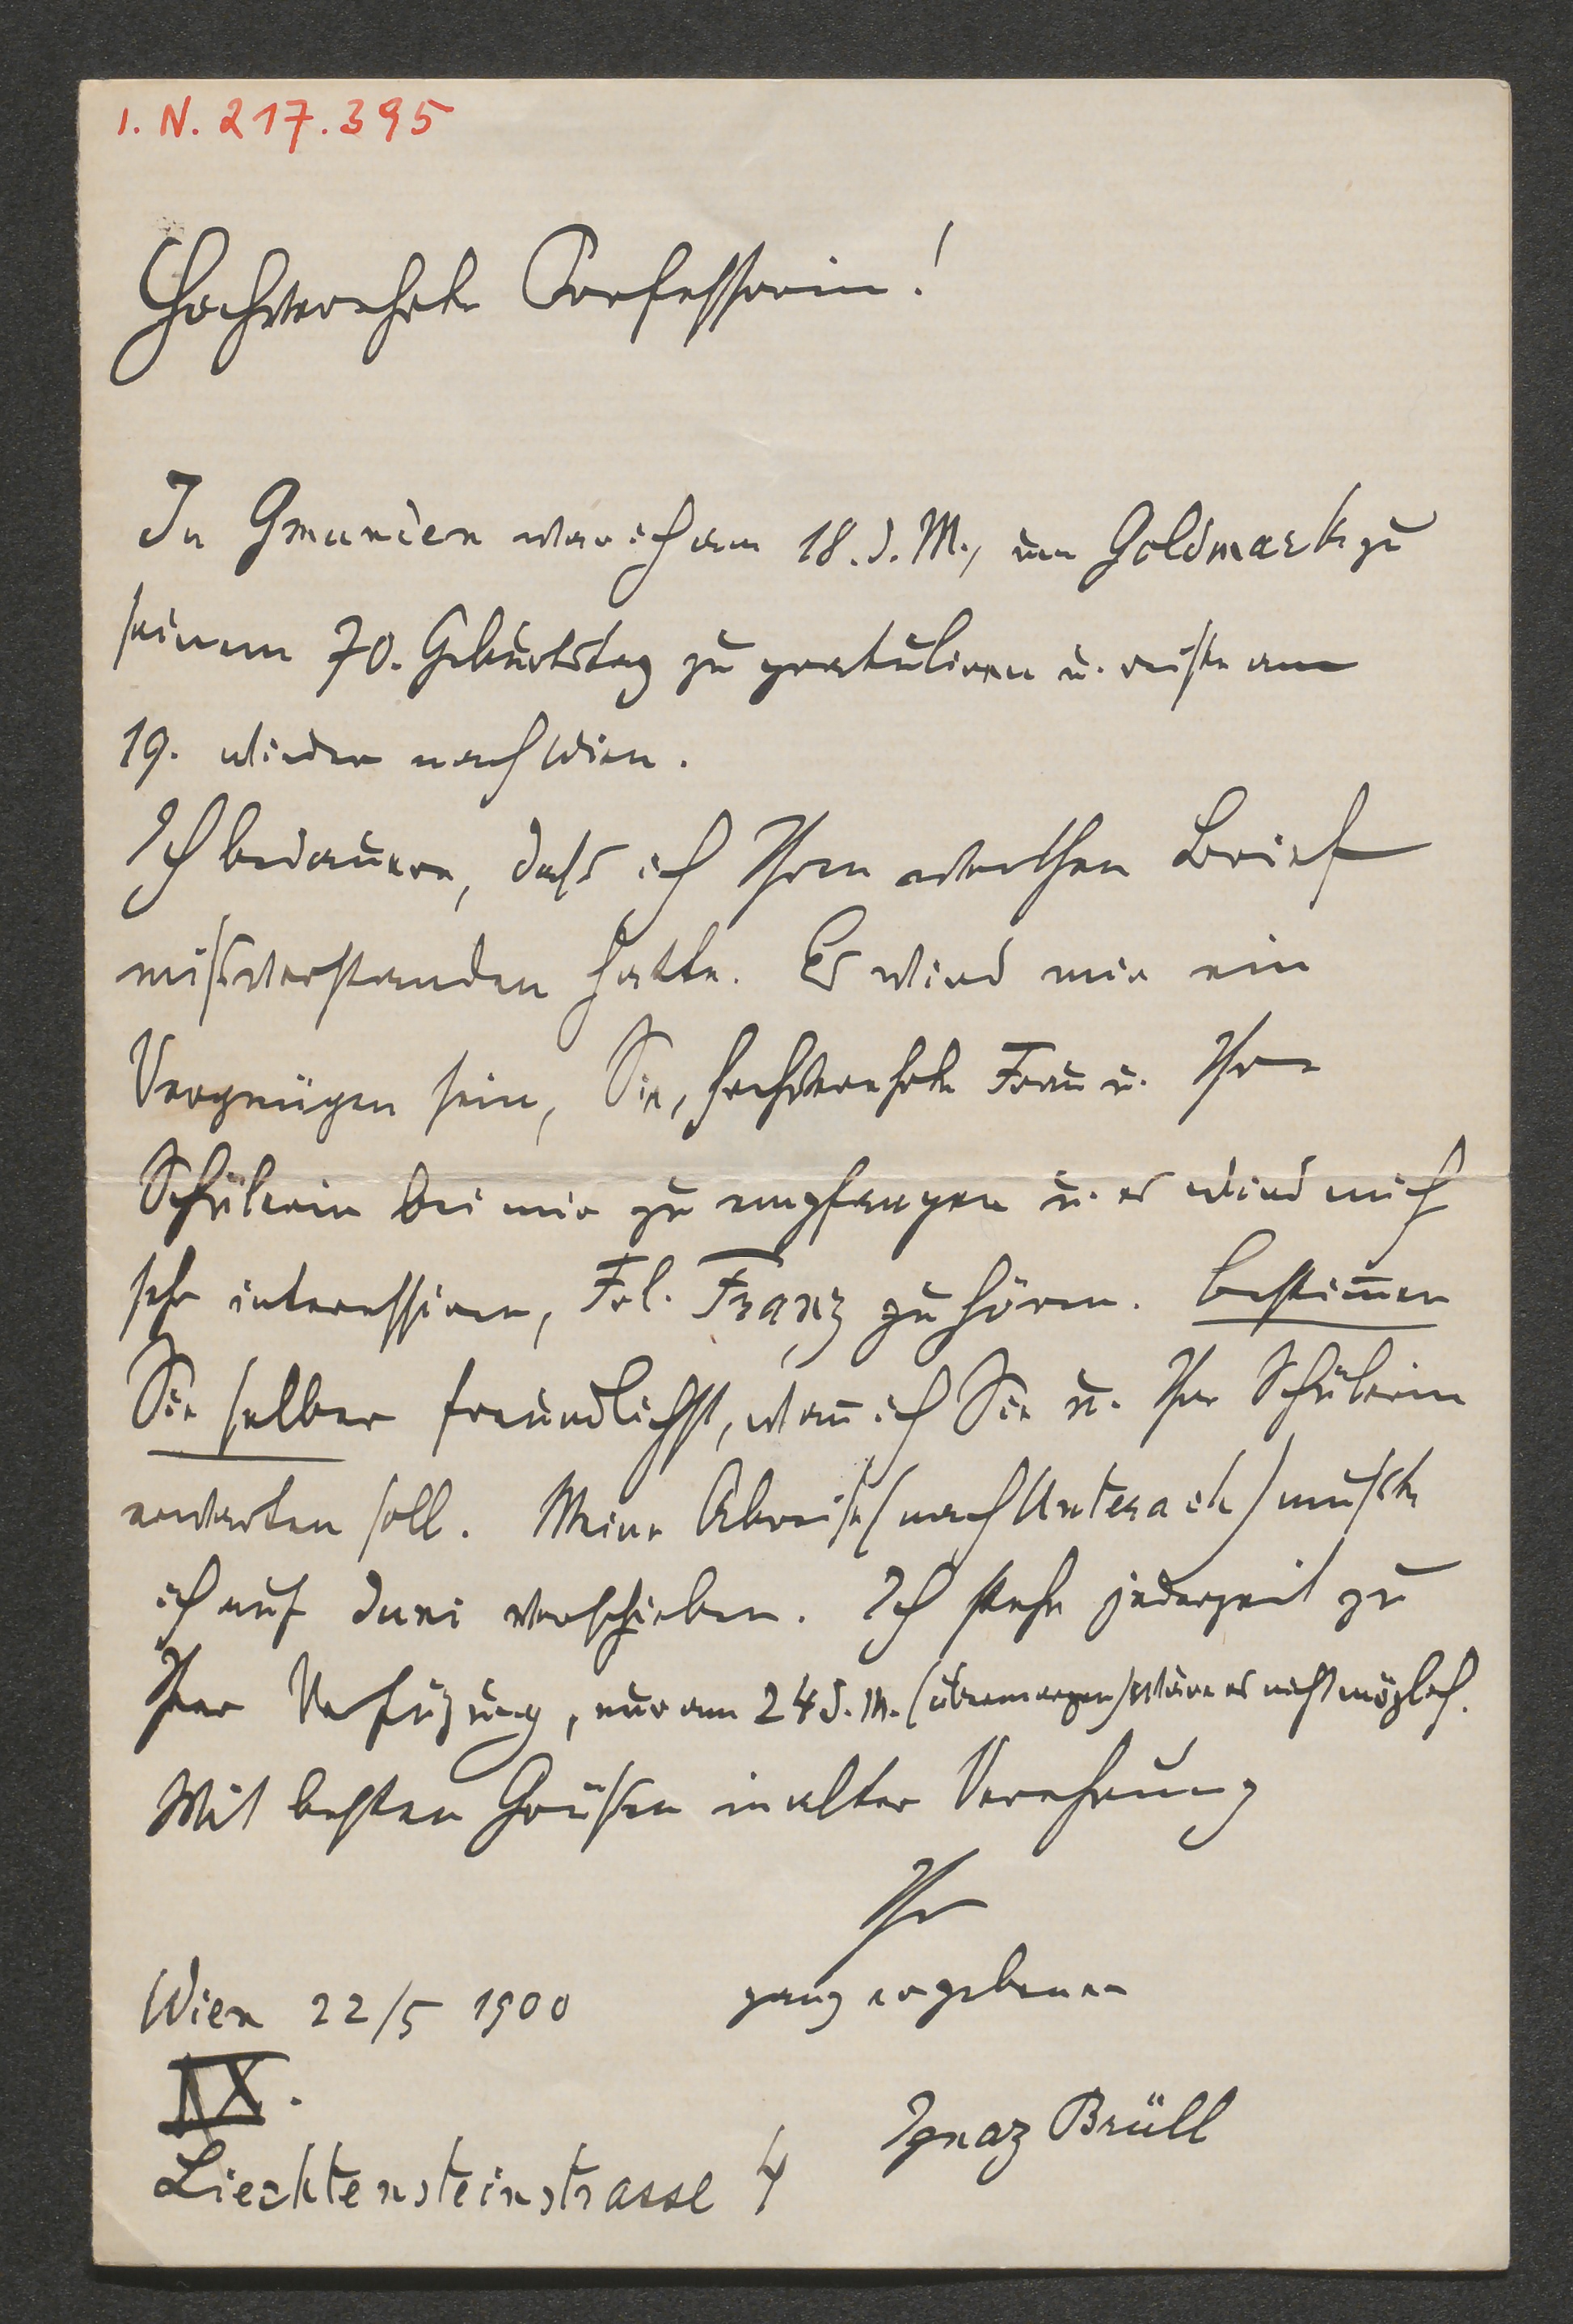 I. N. 217.395
Hochverehrte Professorin!
In Gmunden war ich am 18. d. M., um Goldmark zu
seinem 70. Geburtstag zu gratuliren u. reiste am
19. wieder nach Wien.
Ich bedauere, dass ich Ihren werthen Brief
missverstanden hatte. Es wird mir ein
Vergnügen sein, Sie, hochverehrte Frau u. Ihre
Schülerin bei mir zu empfangen u. es wird mich
sehr interessiren, Frl. Franz zu hören. Bestim̅en
Sie selber freundlichst, wan̅ ich Sie u. Ihre Schülerin
erwarten soll. Meine Abreise (nach Unterach) musste
ich auf Juni verschieben. Ich stehe jederzeit zu
Ihrer Verfügung, nur am 24 d. M. (übermorgen) wäre es nicht möglich.
Mit besten Grüssen in alter Verehrung
Ihr
ganz ergebener
Wien 22/5 1900
IX.
Ignaz Brüll
Liechtensteinstrasse 4